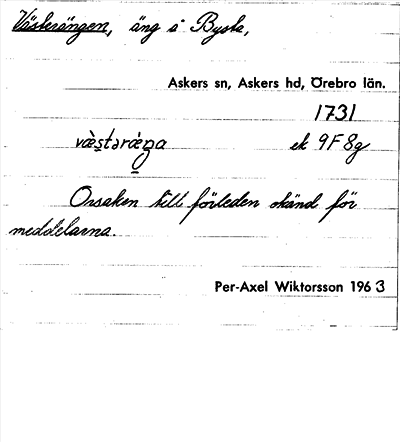 Västerängen, äng å Bysta,
Askers sn, Askers hd, Örebro län.
1731
væ̀stərǽŋa ek 9F8g
Orsaken till förleden okänd för
meddelarna.
Per-Axel Wiktorsson 1963